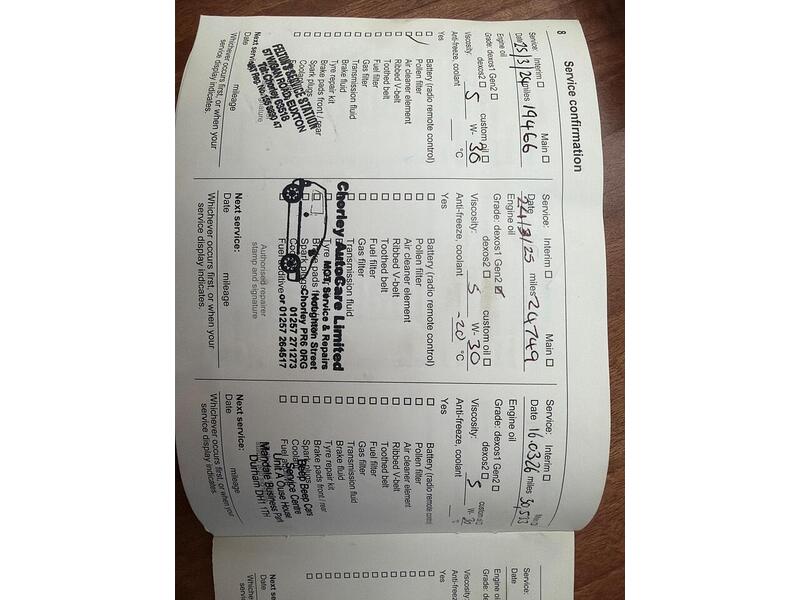 8
Service confirmation
Service: Interim ☐ Main ☐
Date 25/3/24 miles 19466
Engine oil
Grade: dexos1 Gen2 ☐
dexos2 ☐ custom oil ☐
Viscosity: 5 W- 30
Anti-freeze, coolant °C
Yes
☐ Battery (radio remote control)
☐ Pollen filter
☐ Air cleaner element
☐ Ribbed V-belt
☐ Toothed belt
☐ Fuel filter
☐ Gas filter
☐ Transmission fluid
☐ Brake fluid
☐ Tyre repair kit
☐ Brake pads front / rear
☐ Spark plugs
SERVICE STATION
57 WIGAN ROAD, EUXTON
Next service:
Date mileage
Whichever occurs first, or when your
service display indicates.
Service: Interim ☐ Main ☐
Date 24/3/25 miles 24749
Engine oil
Grade: dexos1 Gen2 ☑
dexos2 ☐ custom oil ☐
Viscosity: 5 W- 30
Anti-freeze, coolant -20 °C
Yes
☐ Battery (radio remote control)
☐ Pollen filter
☐ Air cleaner element
☐ Ribbed V-belt
☐ Toothed belt
☐ Fuel filter
☐ Gas filter
☐ Transmission fluid
Chorley AutoCare Limited
MOT, Service & Repairs
Houghton Street
Chorley PR6 0RG
01257 271273
or 01257 264517
Authorised repairer
stamp and signature
Next service:
Date mileage
Whichever occurs first, or when your
service display indicates.
Service: Interim ☐
Date 16.03.26 miles 30,533
Engine oil
Grade: dexos1 Gen2 ☐
dexos2 ☐ custom oil
Viscosity: 5 W- 30
Anti-freeze, coolant
Yes
☐ Battery (radio remote control)
☐ Pollen filter
☐ Air cleaner element
☐ Ribbed V-belt
☐ Toothed belt
☐ Fuel filter
☐ Gas filter
☐ Transmission fluid
☐ Brake fluid
☐ Tyre repair kit
☐ Brake pads front / rear
☐ Spark plugs
Beep Beep Cars
Service Centre
Unit A Ouse House
Mandale Business Park
Durham DH1 1TH
Next service:
Date mileage
Whichever occurs first, or when you
service display indicates.
Service:
Date
Engine oil
Grade: dexos1
Viscosity:
Anti-freeze, coolant
Yes
☐ Battery (radio
☐ Pollen filter
☐ Air cleaner
☐ Ribbed V-belt
☐ Toothed belt
☐ Fuel filter
☐ Gas filter
☐ Transmission
☐ Brake fluid
Next service:
Date
Whichever
service